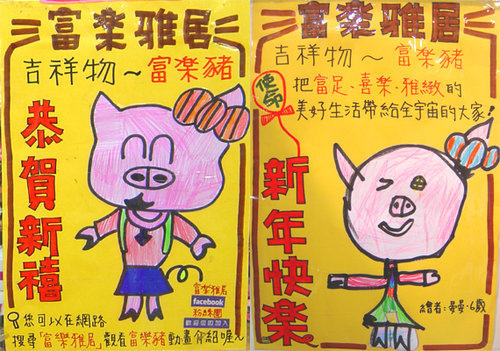 富樂雅居
吉祥物～富樂豬
恭賀新禧
富樂雅居
facebook
粉絲團
歡迎您的加入
您可以在網路
搜尋「富樂雅居」觀看富樂豬動畫介紹喔！
富樂雅居
吉祥物～富樂豬
使命
把富足、喜樂、雅緻的
美好生活帶給全宇宙的大家！
新年快樂
繪者：晏晏、6歲